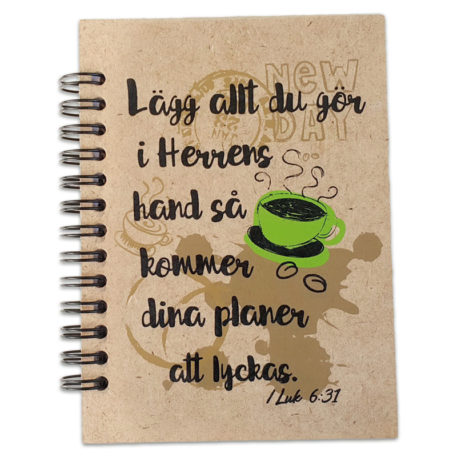 NEW
DAY
Lägg allt du gör
i Herrens
hand så
kommer
dina planer
att lyckas.
/ Luk 6:31